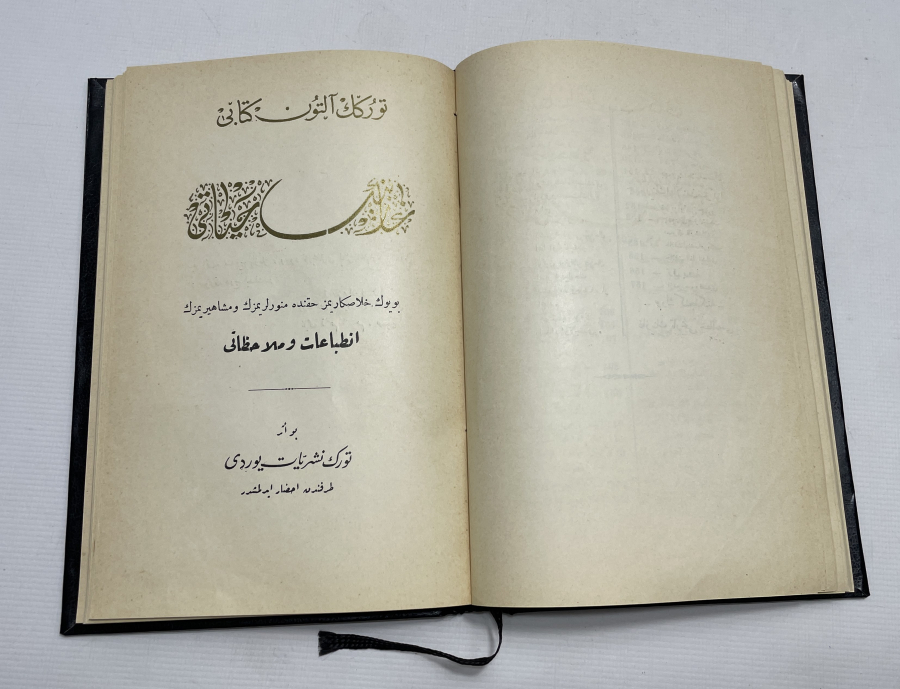 تورُكّك آلتون كتابی
غازینك حیاتی
بویوك خلاصكاریمز حقنده منورلریمزك ومشاهیریمزك
انطباعات وملاحظاتی
بو اثر
تورك نشریات یوردی
طرفندن احضار ایدلمشدر